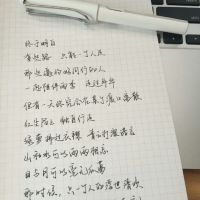 终于明白
有些路 只能一个人走
那些邀约好同行的人
一起相伴雨季 走过年华
但有一天终究会在某个渡口离散
红尘陌上 独自行走
绿萝拂过衣襟 青云打湿诺言
山和水可以两两相忘
日与月可以毫无瓜葛
那时候 只一个人的浮世清欢